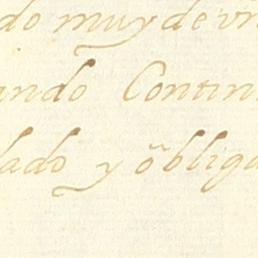 do muy de vn
ando Contin
lado y õbliga